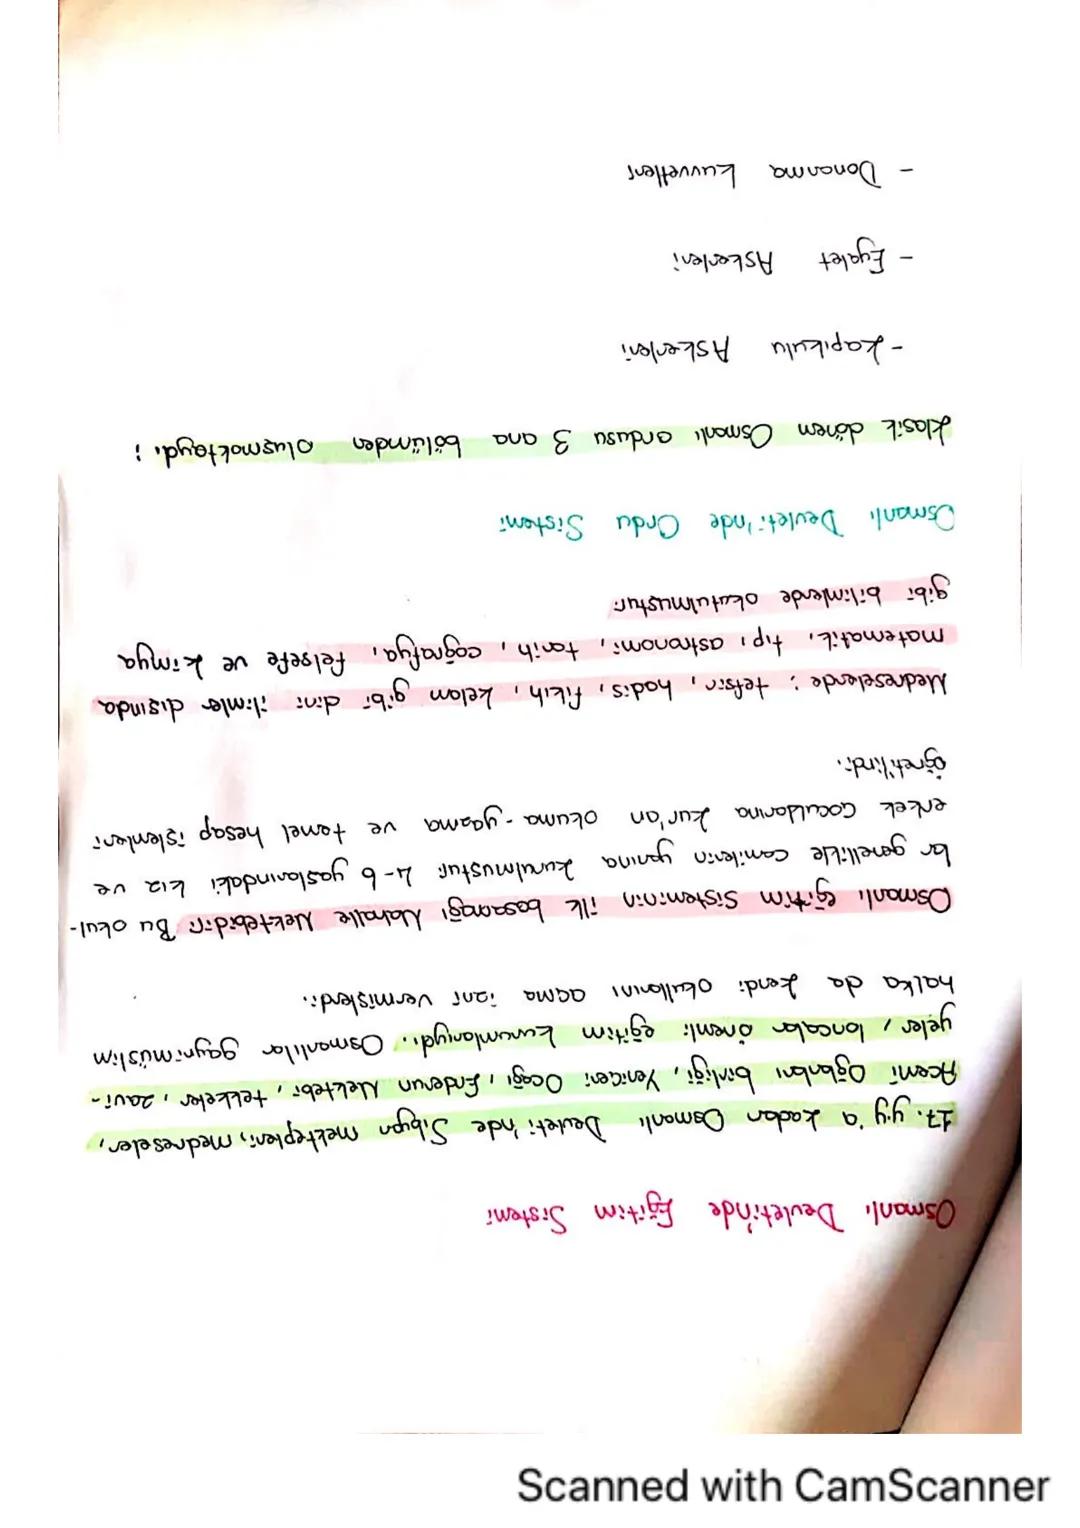 Osmanlı Devleti'nde Eğitim Sistemi
17. yy'a kadar Osmanlı Devleti'nde Sıbyan mektepleri, medreseler,
Acemi Oğlanları birliği, Yeniçeri Ocağı, Enderun Mektebi, tekkeler, zavi-
yeler, loncalar önemli eğitim kurumlarıydı. Osmanlılar gayrimüslim
halka da kendi okullarını açma izni vermişlerdi.
Osmanlı eğitim Sisteminin ilk basamağı Mahalle Mektebidir. Bu okul-
lar genellikle camilerin yanına kurulmuştur. 4-6 yaşlarındaki kız ve
erkek çocuklarına Kur'an okuma-yazma ve temel hesap işlemleri
öğretilirdi.
Medreselerde ; tefsir, hadis, fıkıh, kelam gibi dini ilimler dışında
matematik, tıp, astronomi, tarih, coğrafya, felsefe ve kimya
gibi bilimlerde okutulmuştur.
Osmanlı Devleti'nde Ordu Sistemi
Klasik dönem Osmanlı ordusu 3 ana bölümden oluşmaktaydı ;
- Kapıkulu Askerleri
- Eyalet Askerleri
- Donanma Kuvvetleri
Scanned with CamScanner